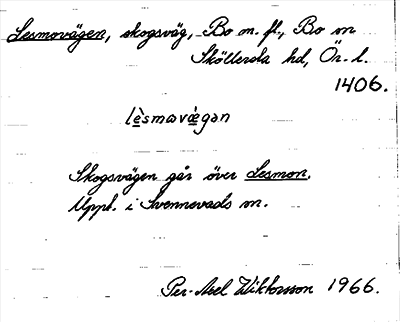 Lesmovägen, skogsväg, Bo m. fl., Bo sn
Sköllersta hd, Ör. l.
1406.
lèsmavǽgan
Skogsvägen går över Lesmon.
Uppt. i Svennevads sn.
Per-Axel Wiktorsson 1966.